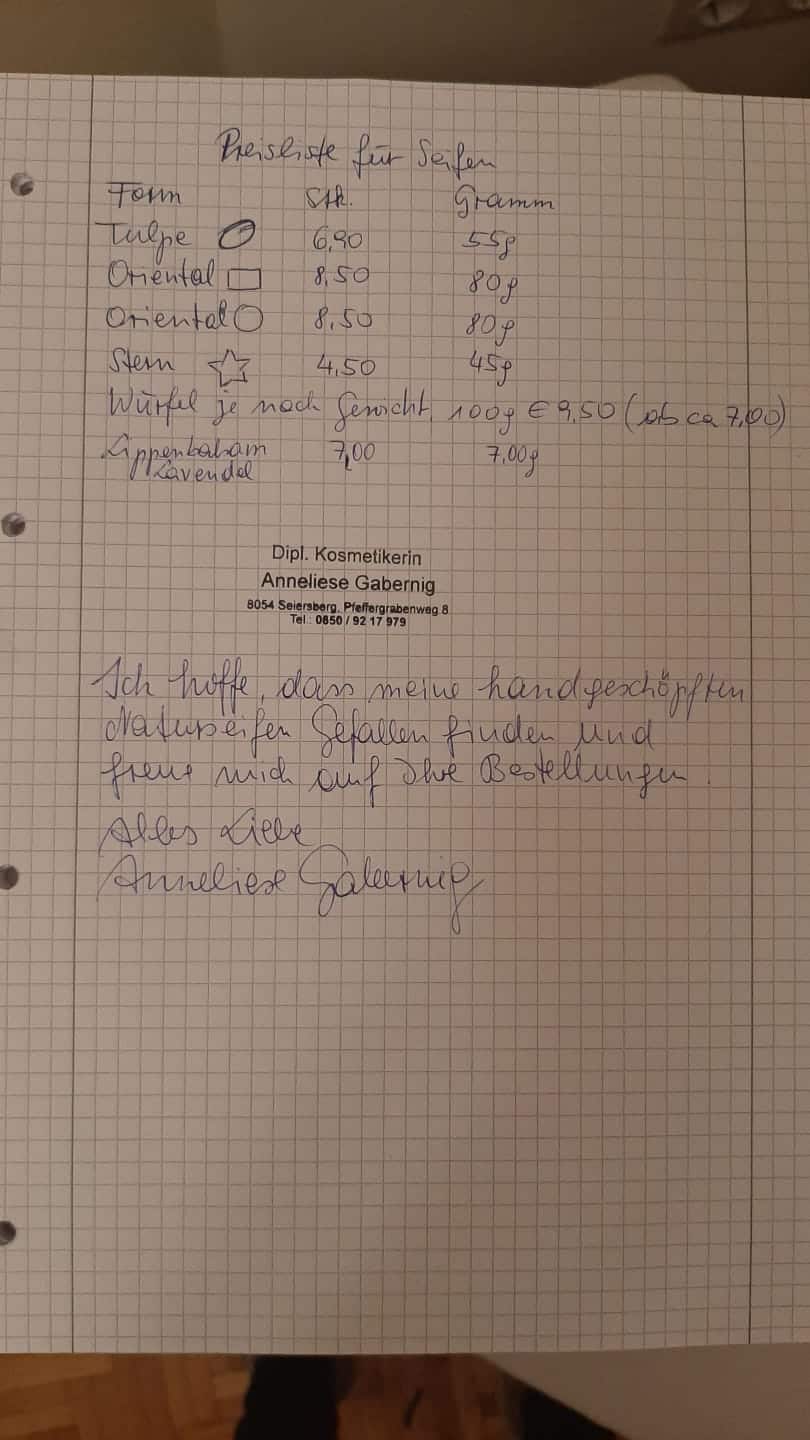 Preisliste für Seifen
Form Stk. Gramm
Tulpe 6,90 55g
Oriental 8,50 80g
Oriental 8,50 80g
Stern 4,50 45g
Würfel je nach Gewicht, 100g € 9,50 (ab ca 7,00)
Lippenbalsam 7,00 7,00g
Lavendel
Dipl. Kosmetikerin
Anneliese Gabernig
8054 Seiersberg, Pfeffergrabenweg 8
Tel.: 0650 / 92 17 979
Ich hoffe, dass meine handgeschöpften
Naturseifen Gefallen finden und
freue mich auf Ihre Bestellungen.
Alles Liebe
Anneliese Gabernig